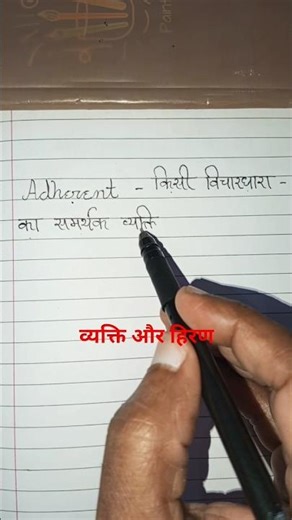 Adherent - किसी विचारधारा -
का समर्थक व्यक्ति
व्यक्ति और हिरण